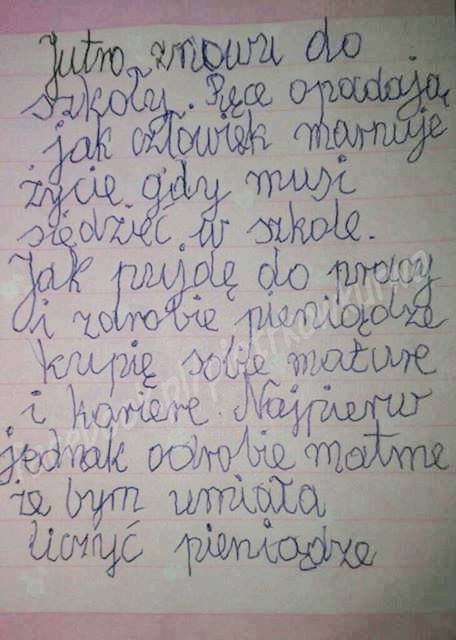 Jutro znowu do
szkoły. Ręce opadają
jak człowiek marnuje
życie gdy musi
siędzieć w szkole.
Jak pujdę do pracy
i zdrobie pieniądze
krupię sobie mature
i kariere. Najpierw
jednak odrobie matme
że bym umiała
liczyć pieniądze